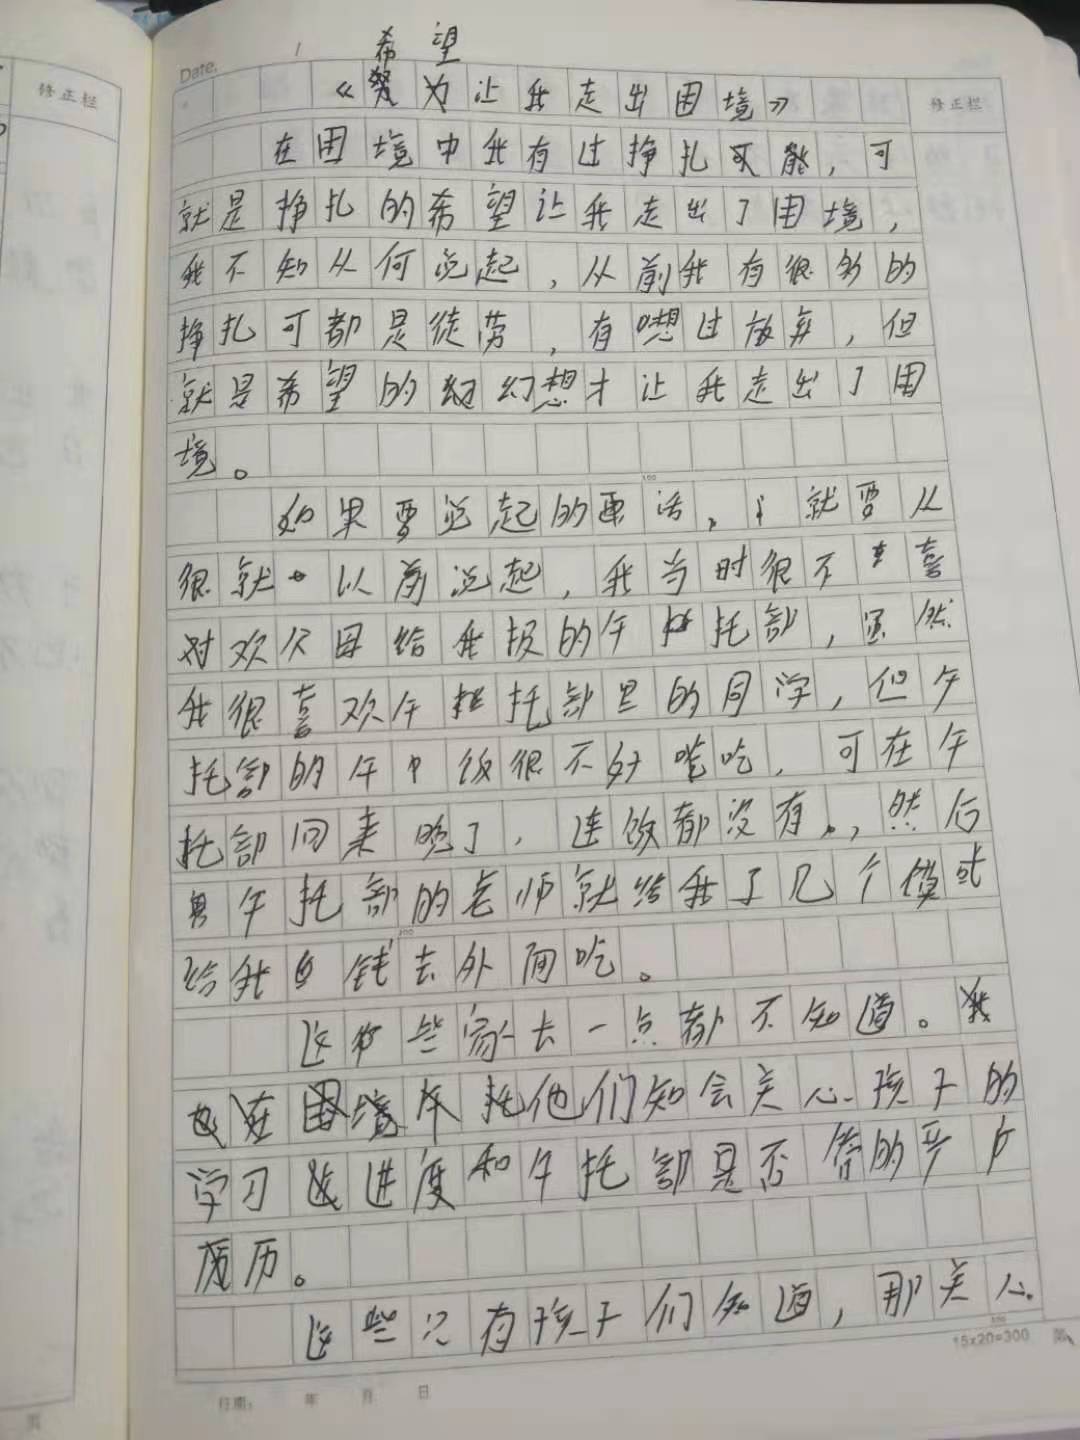 修正栏
Date.
希望
《努为让我走出困境》
修正栏
在困境中我有过挣扎可能，可
就是挣扎的希望让我走出了困境，
我不知从何说起，从前我有很多的
挣扎可都是徒劳，有想过放弃，但
就是希望的幻想才让我走出了困
境。
100
如果要说起的话，就要从
很就以前说起，我当时很不喜
对欢父母给我报的午托部，虽然
我很喜欢午托部里的同学，但午
托部的午饭很不好吃，可在午
托部回来晚了，连饭都没有，然后
午托部的老师就给我了几个馍或
给我钱去外面吃。
200
这些家长一点都不知道。
他们知会关心孩子的
学习进度和午托部是否管的严
厉。
这些只有孩子们知道，那关心
300
15x20=300 第
日期： 年 月 日
页